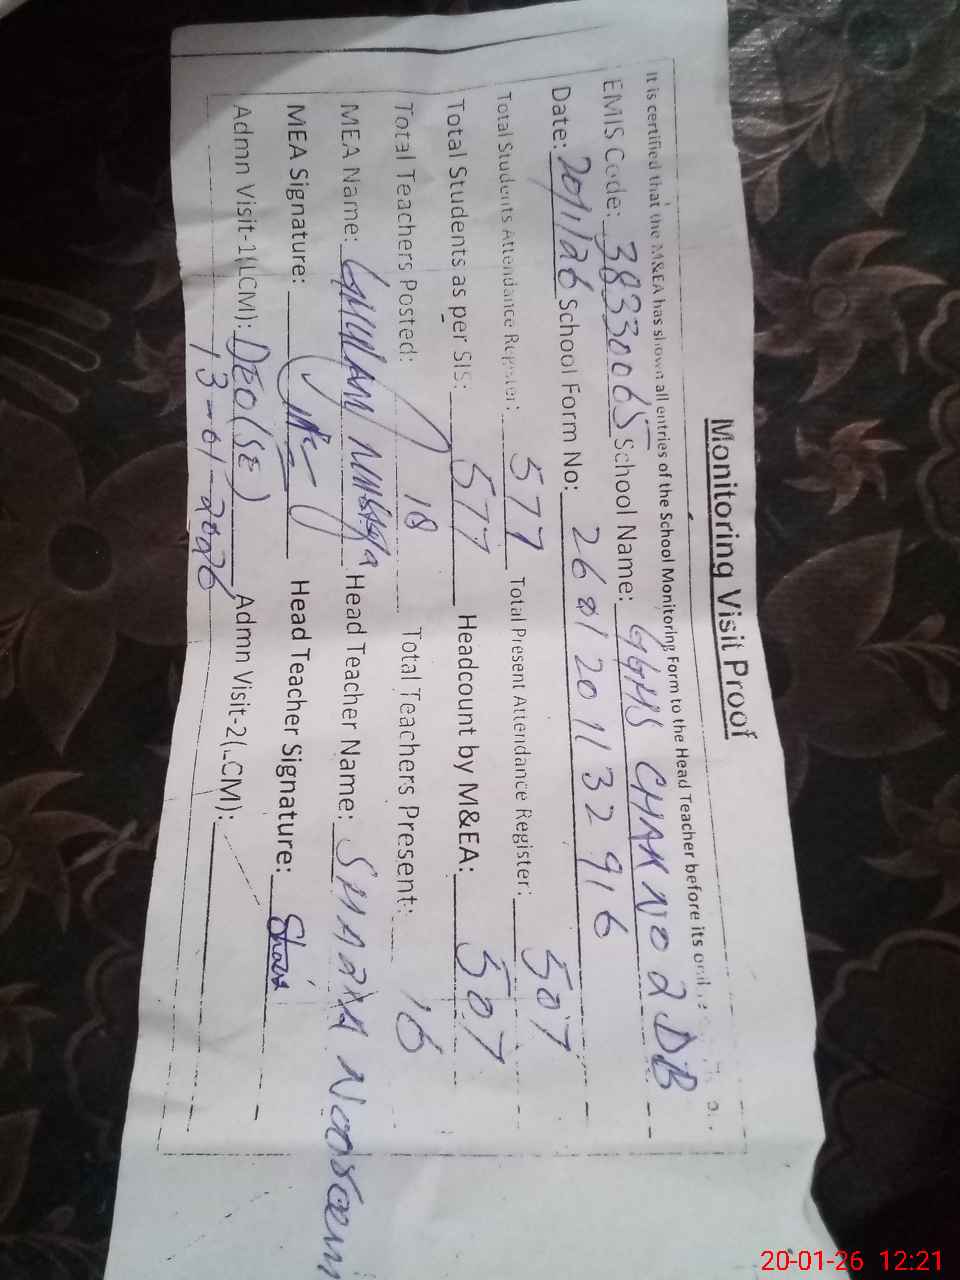 Monitoring Visit Proof
It is certified that the M&EA has shown all entries of the School Monitoring Form to the Head Teacher before its
EMIS Code: 38330065 School Name: GGHS CHAK NO 2 DB
Date: 20/1/26 School Form No: 2601201132916
Total Students Attendance Register: 577 Total Present Attendance Register: 507
Total Students as per SIS: 577 Headcount by M&EA: 507
Total Teachers Posted: 18 Total Teachers Present: 16
MEA Name: GHULAM Head Teacher Name:
MEA Signature: Head Teacher Signature:
Admn Visit-1(LCM): DEO(SE) Admn Visit-2(LCM):
13-01-2026
20-01-26 12:21